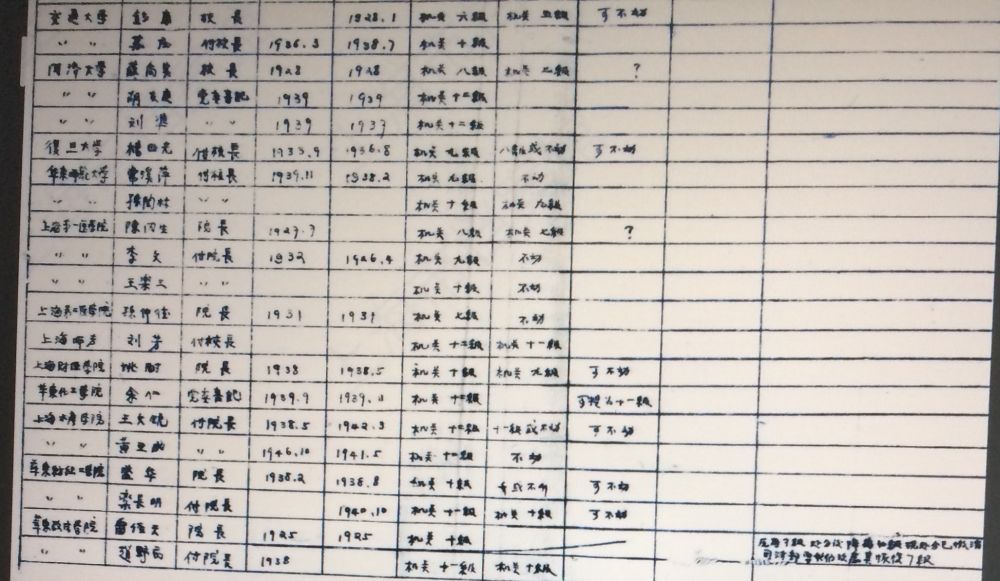 交通大学 彭康 校長 1928.1 机关 六級 机关 五級 可不动
〃 〃 苏庄 付校長 1936.3 1938.7 机关 十級
同济大学 薛尚实 校長 1928 1928 机关 八級 机关 七級 ?
〃 〃 党委書記 1939 1939 机关 十二級
〃 〃 刘 〃 〃 1939 1937 机关 十二級
復旦大学 楊西光 付校長 1933.9 1936.8 机关 九級 八級或不动 可不动
華东师范大学 常溪萍 付校長 1939.11 1938.2 机关 九級 不动
〃 〃 孫陶林 〃 〃 机关 十級 机关 九級
上海第一医学院 陳同生 院長 1927.7 机关 八級 机关 七級 ?
〃 〃 李文 付院長 1932 1926.4 机关 九級 不动
〃 〃 王樂三 〃 〃 机关 十級 不动
上海第二医学院 孫仲德 院長 1931 1931 机关 七級 不动
上海师专 刘芳 付校長 机关 十二級 机关 十一級
上海财经学院 姚耐 院長 1938 1938.5 机关 十級 机关 九級 可不动
華东化工学院 余仁 党委書記 1939.9 1939.11 机关 十二級 可提为十一級
上海水产学院 王文锐 付院長 1938.5 1942.3 机关 十二級 十一級或不动 可不动
〃 〃 黄亚成 〃 〃 1946.10 1941.5 机关 十一級 不动
華东纺织工学院 華 院長 1938.2 1938.8 机关 十級 或不动 可不动
〃 〃 栾長明 付院長 1940.10 机关 十一級 机关 十級 可不动
華东政法学院 雷经天 院長 1925 1925 机关 十級
〃 〃 趙野民 付院長 1938 机关 十一級 机关 十級